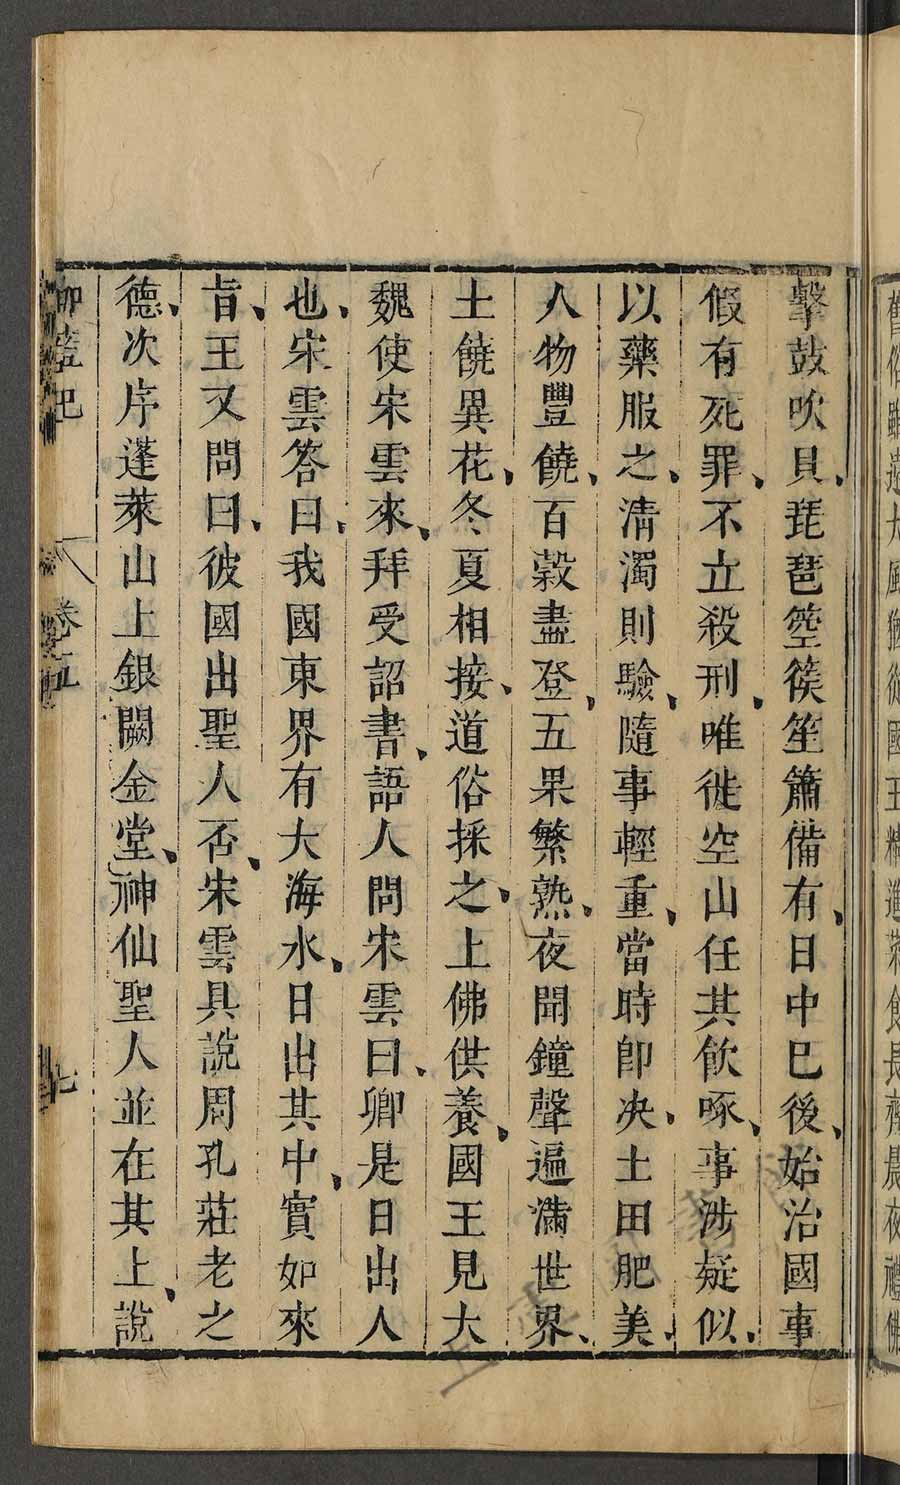 舊俗雖遠土風猶從國王精進菜食長齋晨夜禮佛
擊鼓吹貝、琵琶箜篌笙簫備有、日中已後、始治國事
假有死罪、不立殺刑、唯徙空山任其飲啄、事涉疑似、
以藥服之、清濁則驗、隨事輕重、當時即决、土田肥美、
人物豐饒、百穀盡登、五果繁熟、夜聞鐘聲遍滿世界、
土饒異花、冬夏相接、道俗採之、上佛供養、國王見大
魏使宋雲來、拜受詔書、語人問宋雲曰、卿是日出人
也、宋雲答曰、我國東界有大海水、日出其中、實如來
旨、王又問曰、彼國出聖人否、宋雲具說周孔莊老之
德、次序蓬萊山上銀闕金堂、神仙聖人並在其上、說
卷五
七